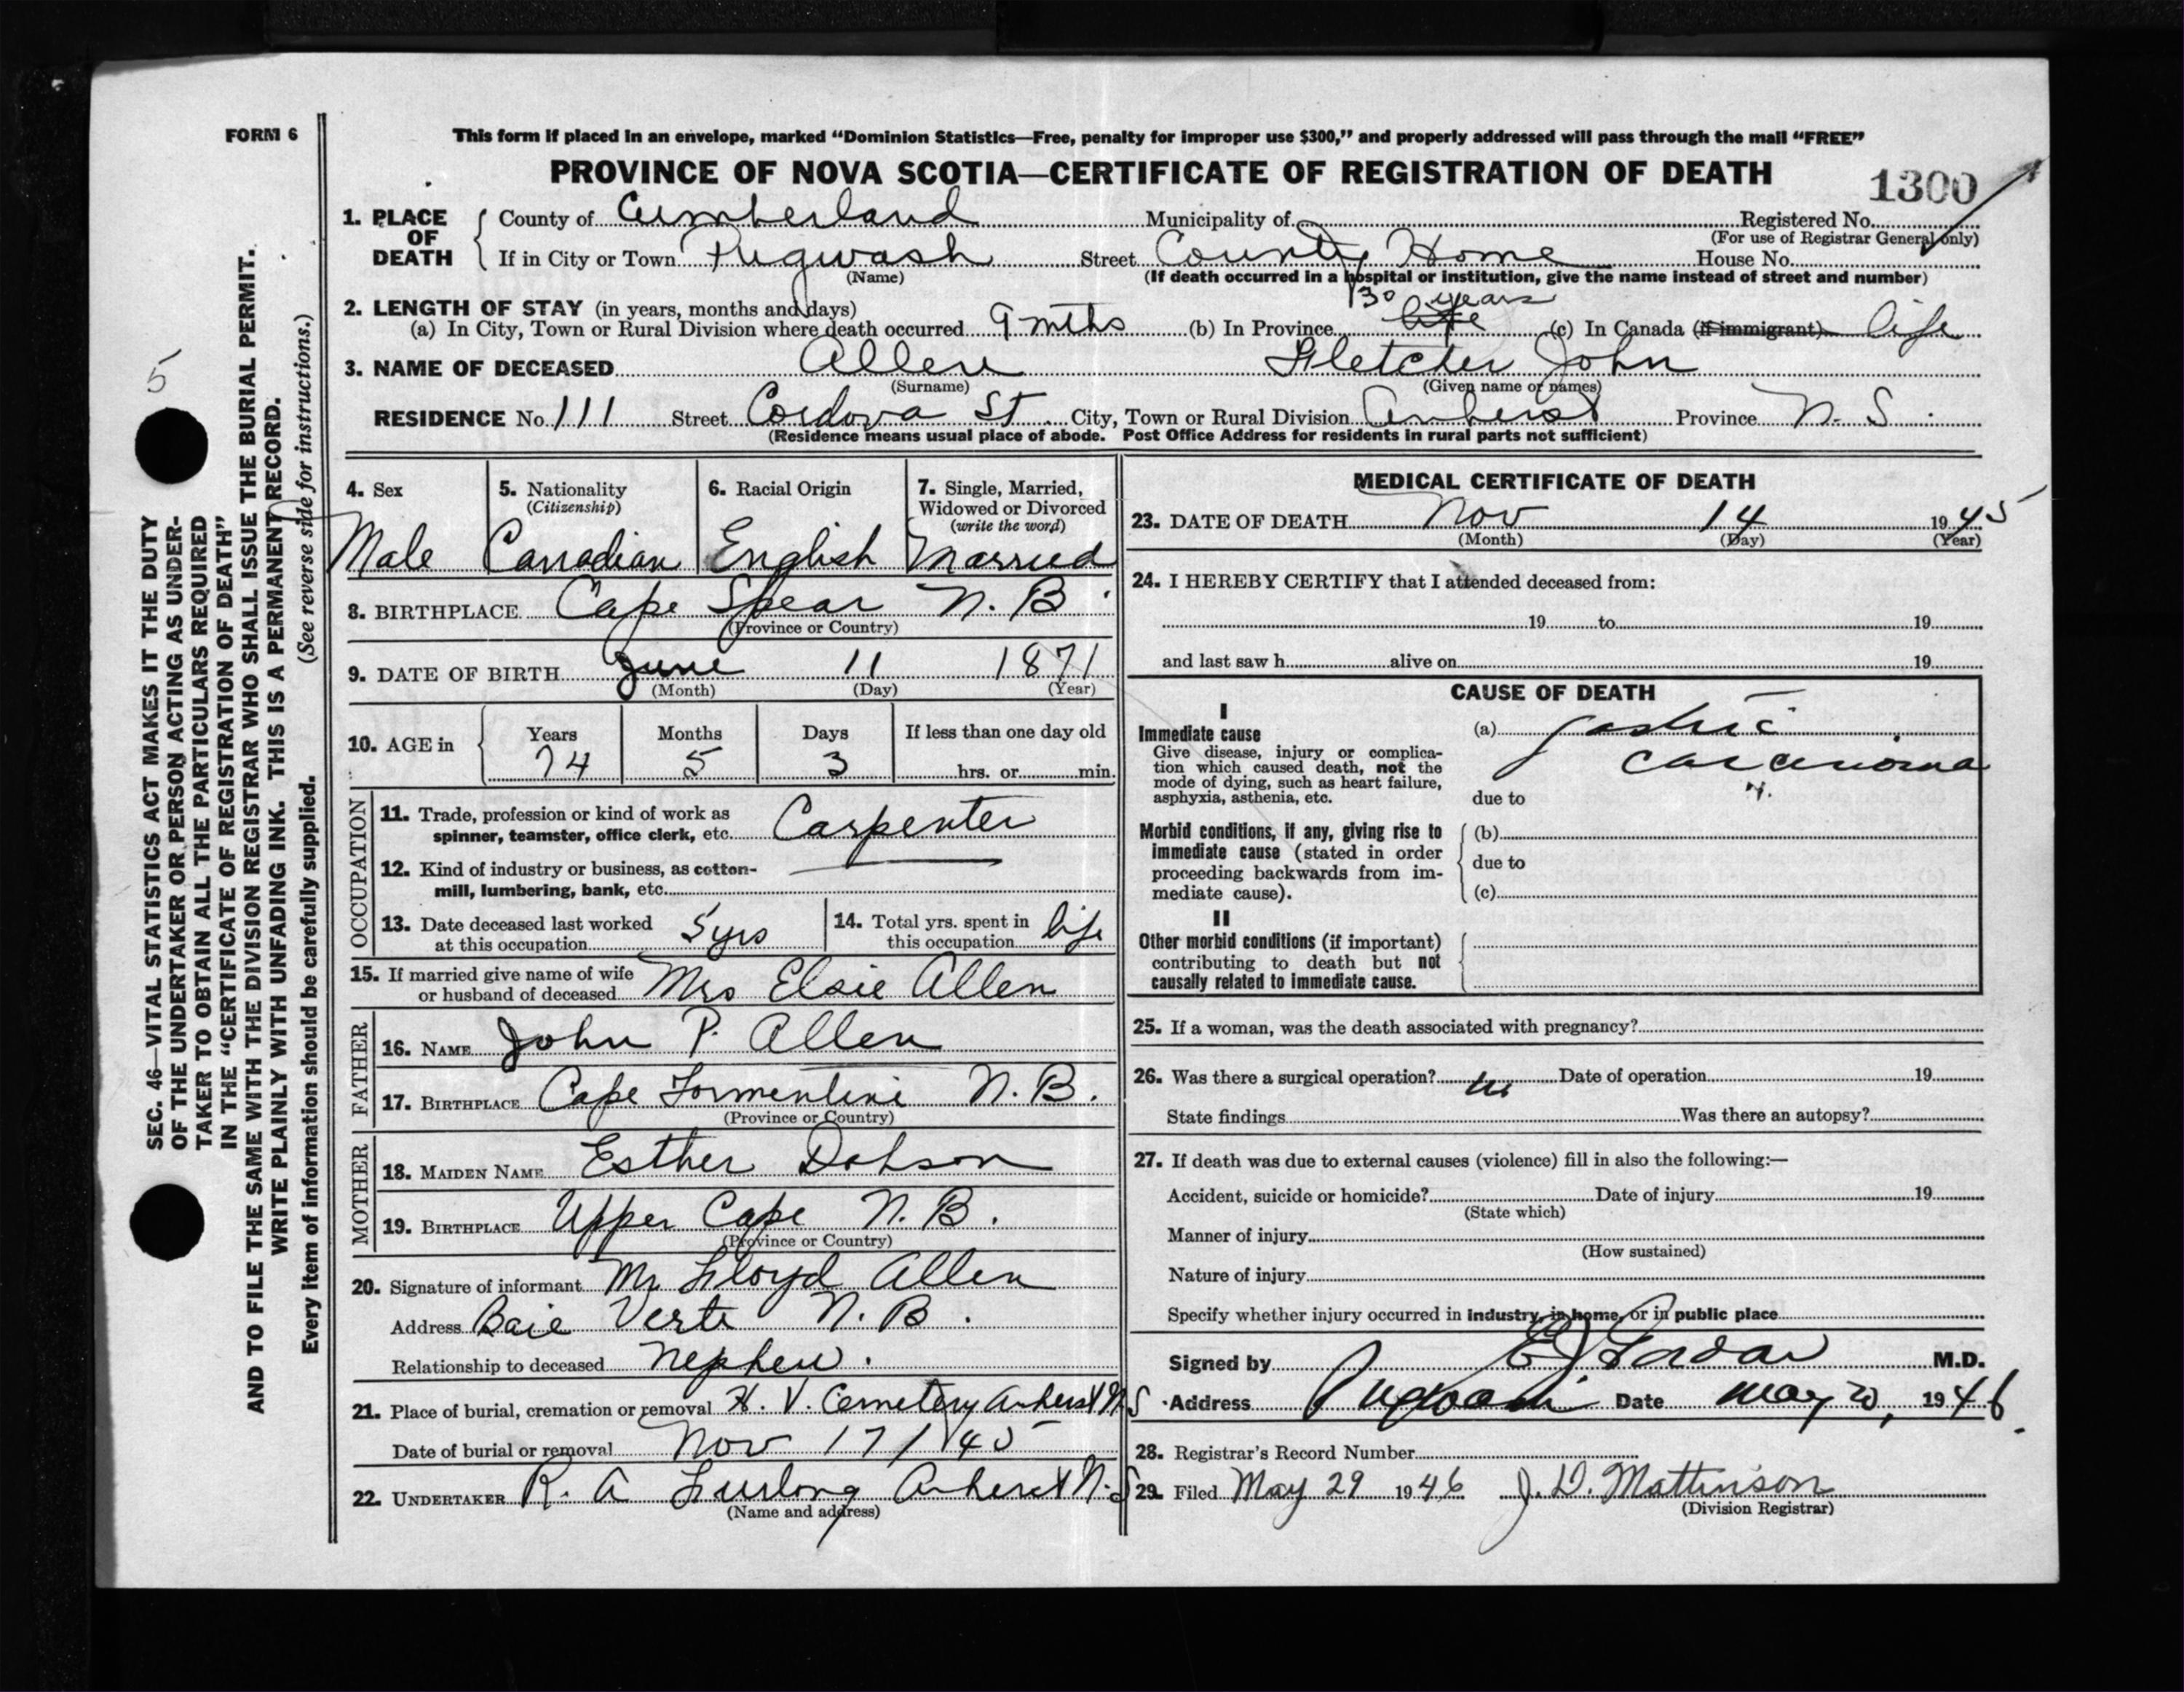 FORM 6
This form if placed in an envelope, marked “Dominion Statistics—Free, penalty for improper use $300,” and properly addressed will pass through the mail “FREE”
PROVINCE OF NOVA SCOTIA—CERTIFICATE OF REGISTRATION OF DEATH
1300
1. PLACE OF DEATH County of Cumberland Municipality of Registered No.
(For use of Registrar General only)
If in City or Town Pugwash Street County Home House No.
(Name) (If death occurred in a hospital or institution, give the name instead of street and number)
2. LENGTH OF STAY (in years, months and days) 30 years
(a) In City, Town or Rural Division where death occurred 9 mths (b) In Province life (c) In Canada (if immigrant) life
3. NAME OF DECEASED Allen Fletcher John
(Surname) (Given name or names)
RESIDENCE No. 111 Street Cordova St. City, Town or Rural Division Amherst Province N. S.
(Residence means usual place of abode. Post Office Address for residents in rural parts not sufficient)
4. Sex 5. Nationality (Citizenship) 6. Racial Origin 7. Single, Married, Widowed or Divorced (write the word)
Male Canadian English Married
8. BIRTHPLACE Cape Spear N. B.
(Province or Country)
9. DATE OF BIRTH June 11 1871
(Month) (Day) (Year)
10. AGE in Years Months Days If less than one day old
74 5 3 hrs. or min.
OCCUPATION
11. Trade, profession or kind of work as
spinner, teamster, office clerk, etc. Carpenter
12. Kind of industry or business, as cotton-
mill, lumbering, bank, etc.
13. Date deceased last worked
at this occupation 5 yrs
14. Total yrs. spent in
this occupation life
15. If married give name of wife
or husband of deceased Mrs Elsie Allen
FATHER
16. NAME John P. Allen
17. BIRTHPLACE Cape Tormentine N. B.
(Province or Country)
MOTHER
18. MAIDEN NAME Esther Dobson
19. BIRTHPLACE Upper Cape N. B.
(Province or Country)
20. Signature of informant Mr Lloyd Allen
Address Baie Verte N. B.
Relationship to deceased nephew.
21. Place of burial, cremation or removal H. V. Cemetery Amherst N S
Date of burial or removal Nov 17/45
22. UNDERTAKER R. A Furlong Amherst N. S
(Name and address)
MEDICAL CERTIFICATE OF DEATH
23. DATE OF DEATH Nov 14 1945
(Month) (Day) (Year)
24. I HEREBY CERTIFY that I attended deceased from:
19 to 19
and last saw h alive on 19
CAUSE OF DEATH
I
Immediate cause
Give disease, injury or complica-
tion which caused death, not the
mode of dying, such as heart failure,
asphyxia, asthenia, etc.
(a) gastric
carcinoma
due to
Morbid conditions, if any, giving rise to
immediate cause (stated in order
proceeding backwards from im-
mediate cause).
(b)
due to
(c)
II
Other morbid conditions (if important)
contributing to death but not
causally related to immediate cause.
25. If a woman, was the death associated with pregnancy?
26. Was there a surgical operation? no Date of operation 19
State findings Was there an autopsy?
27. If death was due to external causes (violence) fill in also the following:—
Accident, suicide or homicide? Date of injury 19
(State which)
Manner of injury
(How sustained)
Nature of injury
Specify whether injury occurred in industry, in home, or in public place
Signed by M.D.
Address Pugwash Date May 20, 1946.
28. Registrar’s Record Number
29. Filed May 29 1946 J. D. Mattinson
(Division Registrar)
5
SEC. 46—VITAL STATISTICS ACT MAKES IT THE DUTY
OF THE UNDERTAKER OR PERSON ACTING AS UNDER-
TAKER TO OBTAIN ALL THE PARTICULARS REQUIRED
IN THE “CERTIFICATE OF REGISTRATION OF DEATH”
AND TO FILE THE SAME WITH THE DIVISION REGISTRAR WHO SHALL ISSUE THE BURIAL PERMIT.
WRITE PLAINLY WITH UNFADING INK. THIS IS A PERMANENT RECORD.
Every item of information should be carefully supplied. (See reverse side for instructions.)